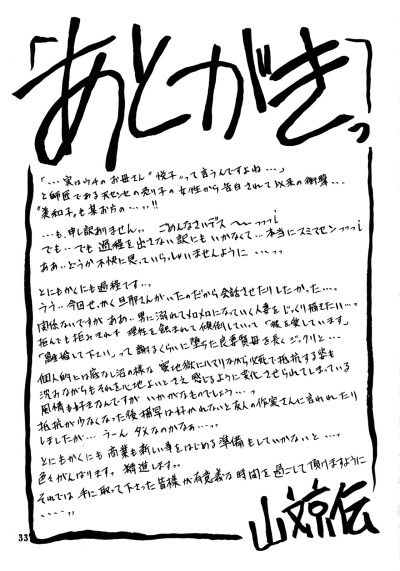 「あとがきっ
「...実はウチのお母さん"悦子"って言うんですよね...」
と師匠である天センセの売り子の女性から告白されて以来の衝撃...
"美和子"も某お方の...っ!!
...も、申し訳ありません。ごめんなさいデス〜〜っっっ!
でも..でも過程を出さない訳にもいかなくて...本当にスミマセンっっっ!
ああ..どうか不快に思っていらっしゃいませんように...っっ
とにもかくにも過程です...。
うう..今回せっかく旦那さんがいたのだから会話させたりしたかった...。
関係ないですが、ああ..男に溺れてメロメロになっていく人妻をじっくり描きたい...っ
拒んでも拒みきれず理性を飲まれて傾倒していって「彼を愛しています」
「離婚して下さい」って謝るくらいに堕ちた良妻賢母を長くジックリと...
個人的には底なし沼の様な愛地獄にハマリながら必死で抵抗する姿も
沈みながらもそれを心地よいとさえ感じるように変化させられてしまっている
風情も好きなんですが いかがなものでしょう...っ
抵抗が少なくなった後描写は好かれないと友人の作家さんに言われたり
しましたが... うーん ダメなのかなぁ...っ
とにもかくにも商業も新しい事をはじめる準備もしていかないと...。
色々がんばります。精進します。
それでは 手に取って下さった皆様が有意義な時間を過ごして頂けますように
....っっ
山文京伝
33